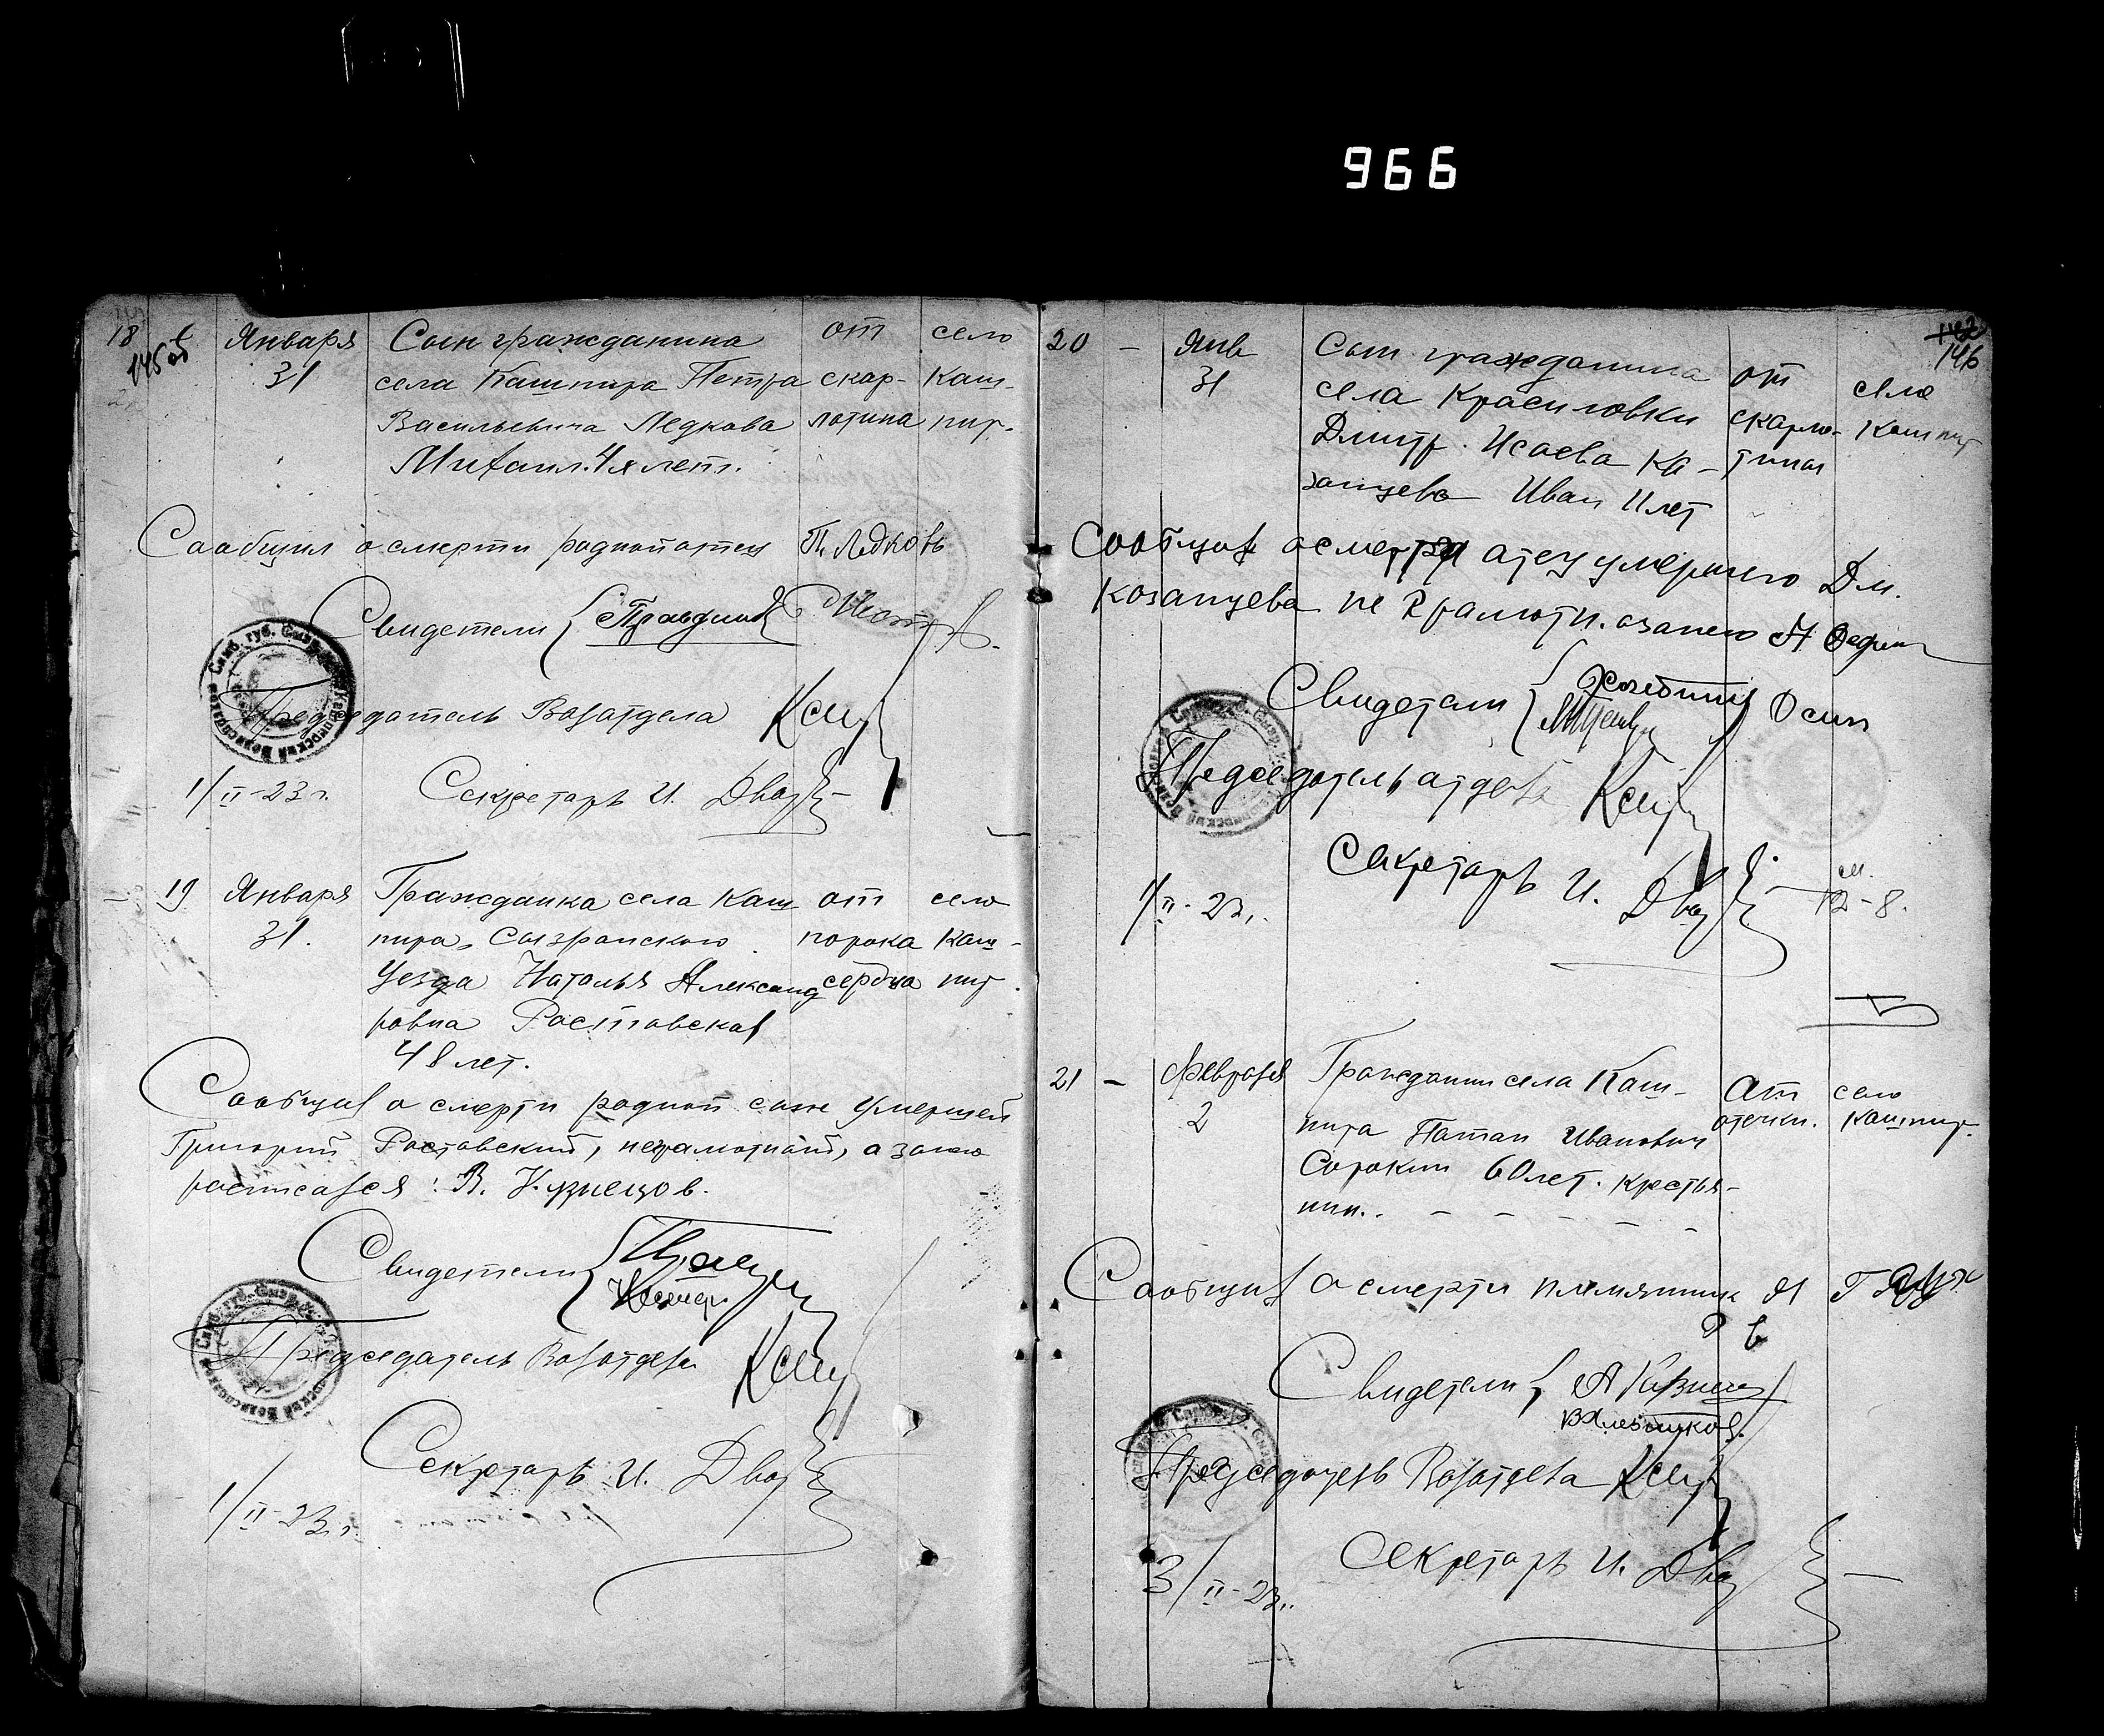 966
18
145 об
Января
31
Сын гражданина
села Кашпира Петра
Васильевича Ледкова
Михаил. 4х лет.
от
скар-
лотина
село
Каш-
пир.
Сообщил о смерти родной отец П. Ледковъ
Свидетели
Председатель Волотдела
1/II-23 г.
Секретарь И.
19
Января
31.
Гражданка села Каш
пира, Сызранского
Уезда Наталья Александ
ровна Ростовская
48 лет.
от
порока
сердца
село
Каш-
пир.
Сообщил о смерти родной сын умершей
Григорий Ростовский, неграмотный, а за него
росписался: В. Кузнецов.
Свидетели
Председатель Волотдела
Секретарь И.
1/II-23 г.
142
146
20 -
Янв
31
Сын гражданина
села Красиловки
Дмитр. Исаева Ка-
занцева Иван 11 лет
от
скарло-
тины
село
Кашпир
Сообщил о смерти отец умершего Дм.
Козанцева не грамотн. а за него
Свидетели
Председатель отдела
Секретарь И.
1/II-23 г.
21 -
Февраля
2
Гражданин села Каш-
пира Патап Иванович
Сорокин 60 лет. крестья-
нин. - - - - - -
От
отечки.
село
Кашпир.
Сообщил о смерти племянник
Свидетели
В Хлебников.
Председатель Волотдела
Секретарь И.
3/II-23 г.